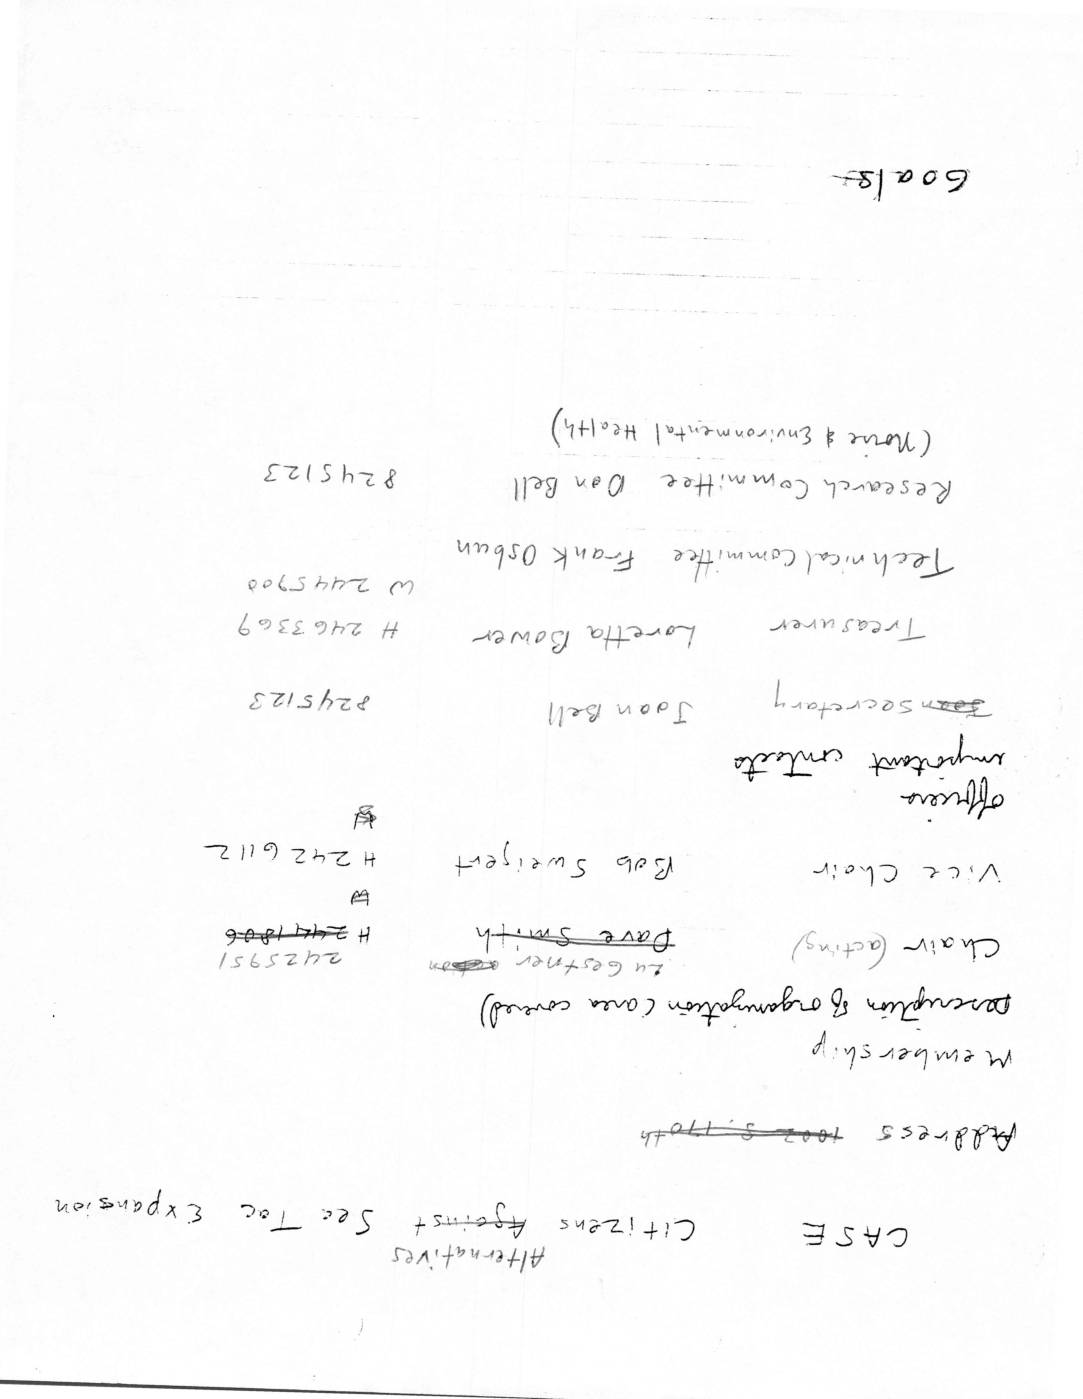 Alternatives
CASE Citizens Against Sea Tac Expansion
Address 1002 S. 170th
Membership
Description of organization (area covered)
Lu Gestner 2425951
Chair (acting) Dave Smith H 2441806
W
Vice Chair Bob Sweigert H 242 6112
W
officers
important contacts
Joan Secretary Joan Bell 8245123
Treasurer Loretta Bower H 246 3369
W 244 5900
Technical Committee Frank Osbun
Research Committee Don Bell 8245123
(Noise & Environmental Health)
Goals